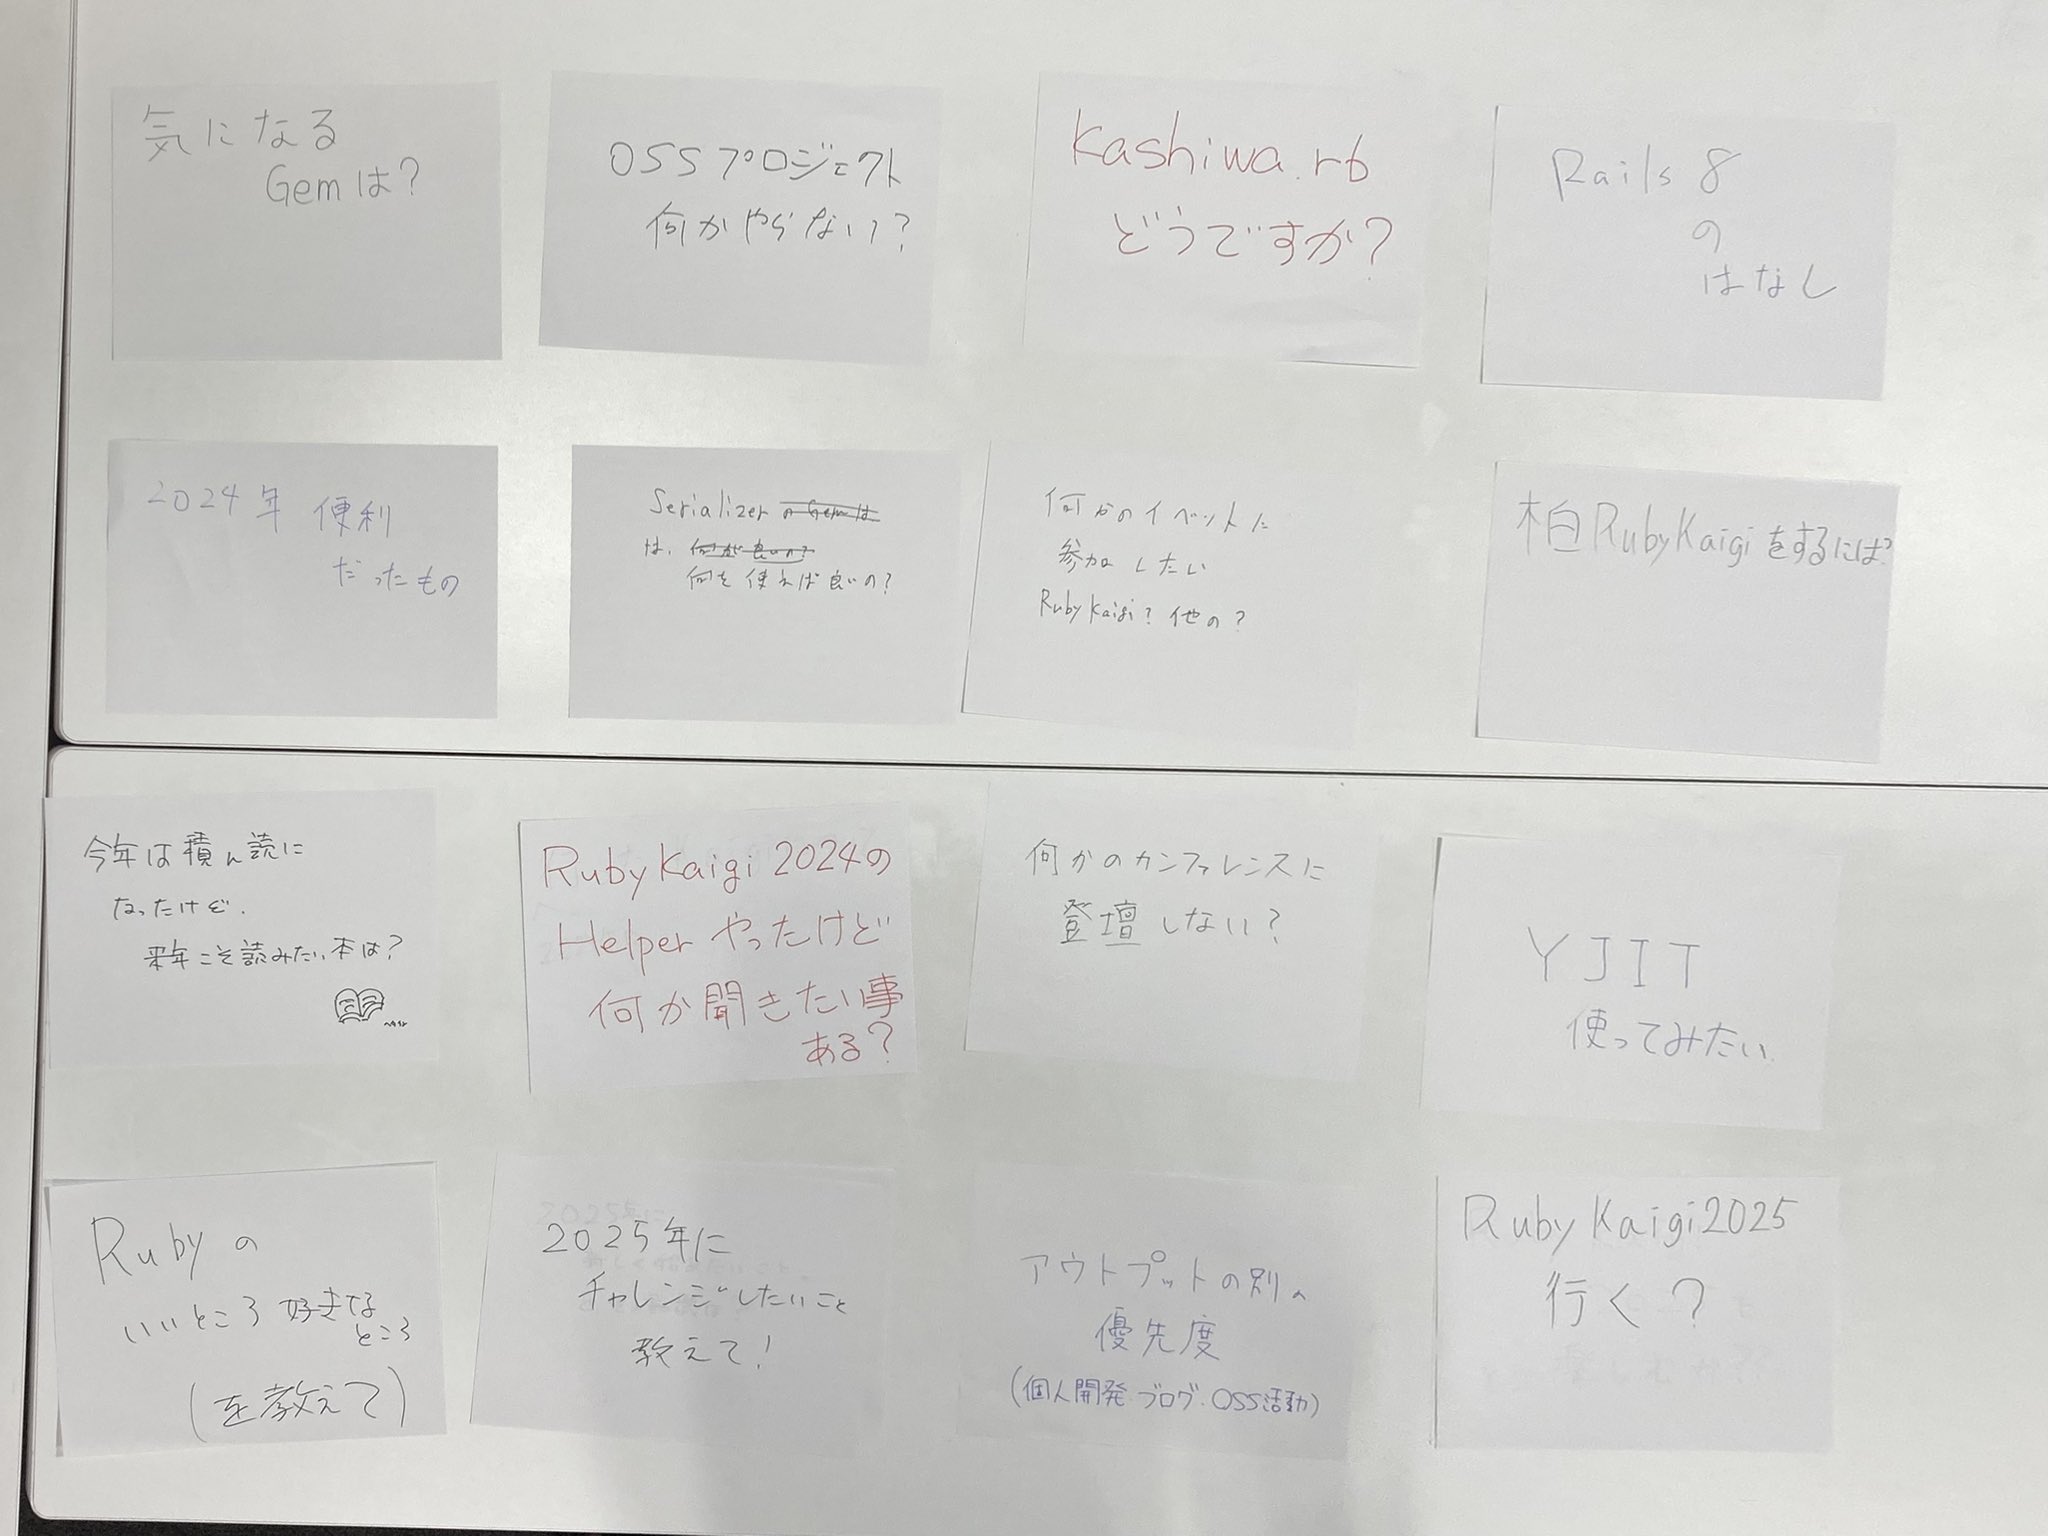 気になる
Gemは?
OSSプロジェクト
何かやらない?
Kashiwa.rb
どうですか?
Rails 8
の
はなし
2024年 便利
だったもの
Serializer のGemは
は、何が良いの?
何を使えば良いの?
何かのイベントに
参加したい
RubyKaigi? 他の?
柏RubyKaigiをするには?
今年は積ん読に
なったけど、
来年こそ読みたい本は?
RubyKaigi 2024の
Helper やったけど
何か聞きたい事
ある?
何かのカンファレンスに
登壇しない?
YJIT
使ってみたい
Rubyの
いいところ 好きな
ところ
(を教えて)
2025年に
チャレンジしたいこと
教えて!
アウトプットの別の
優先度
(個人開発・ブログ・OSS活動)
RubyKaigi2025
行く?